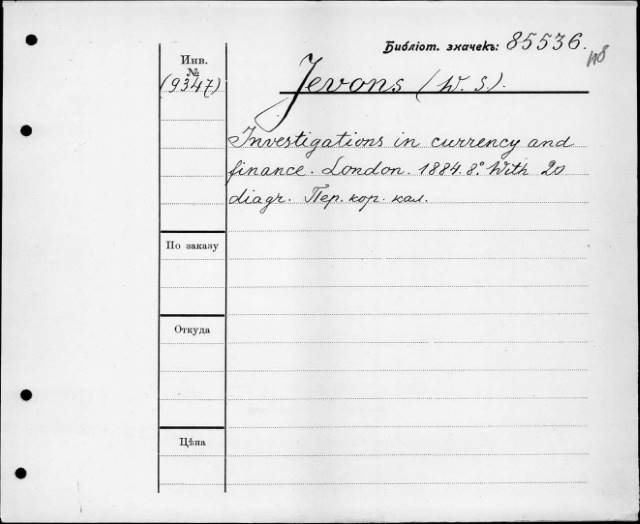 Библіот. значекъ: 85536.
Инв.
№
(9347)
Jevons (W. S.).
Investigations in currency and
finance. London. 1884. 8° With 20
diagr. Пер. кор. кал.
По заказу
Откуда
Цѣна